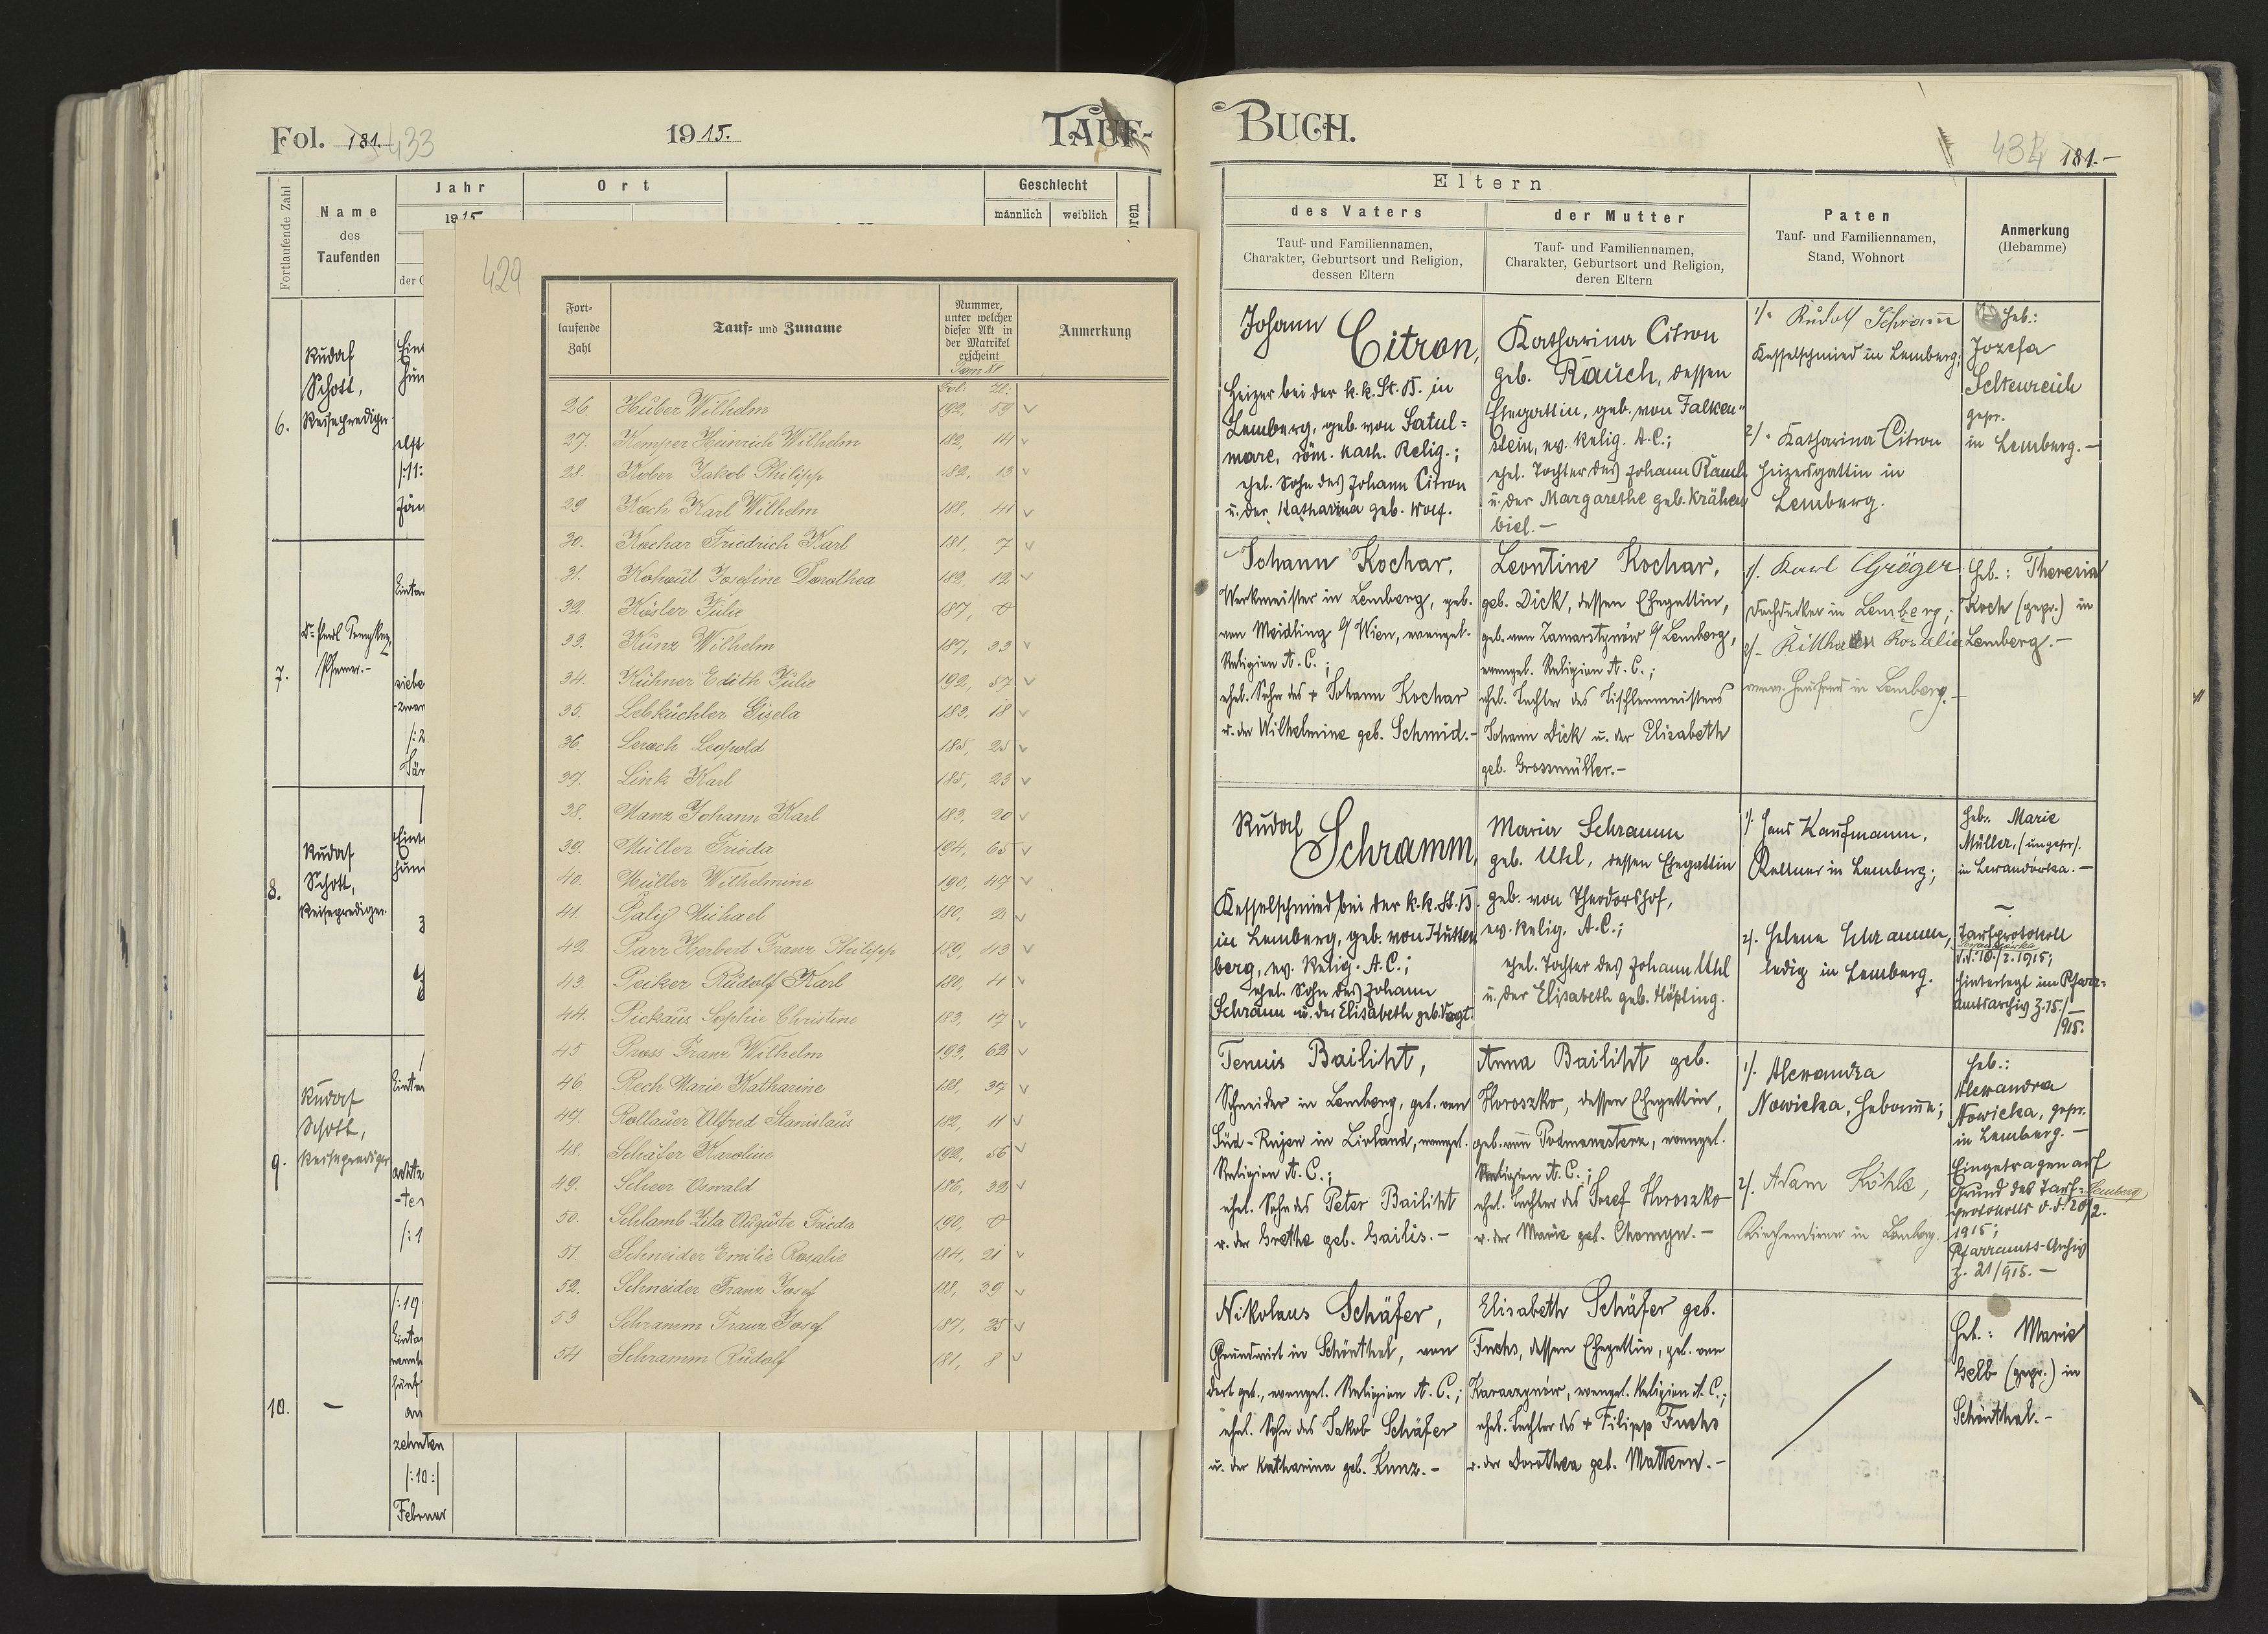 Fol. 181. 433
1915.
TAUF-
Fortlaufende Zahl
Name
des
Taufenden
Jahr
1915
Ort
Geschlecht
männlich weiblich
6.
Rudolf
Schott,
Reiseprediger
7.
Pfarrer.-
8.
Rudolf
Schott,
Reiseprediger
9.
Rudolf
Schott,
Reiseprediger
10. –
zehnten
/:10:/
Februar
429
Fort-
laufende
Zahl
Tauf- und Zuname
Nummer,
unter welcher
dieser Akt in
der Matrikel
erscheint
Anmerkung
Tom XI
Fol. Z.
26. Huber Wilhelm 192, 59 v
27. Kemper Heinrich Wilhelm 182, 14 v
28. Kober Jakob Philipp 182, 13 v
29 Koch Karl Wilhelm 188, 41 v
30. Kochar Friedrich Karl 181, 7 v
31. Kohout Josefine Dorothea 182, 12 v
32. Kösler Julie 187, 0
33. Kunz Wilhelm 187, 33 v
34. Kühner Edith Julie 192, 57 v
35. Lebküchler Gisela 183, 18 v
36. Lerach Leopold 185, 25 v
37. Link Karl 185, 23 v
38. Manz Johann Karl 183, 20 v
39. Müller Frieda 194, 65 v
40. Müller Wilhelmine 190, 47 v
41. Michael 180, v
42. Parr Herbert Franz Philipp 189, 43 v
43. Peiker Rudolf Karl 180, 4 v
44. Pickaus Sophie Christine 183, 17 v
45 Pross Franz Wilhelm 193, 62 v
46. Rech Marie Katharine 188, 37 v
47. Rollauer Alfred Stanislaus 182, 11 v
48. Schäfer Karoline 192, 56 v
49. Scheer Oswald 186, 32 v
50. Schlamb Zita Auguste Frieda 190, 0
51. Schneider Emilie Rosalie 184, 21 v
52. Schneider Franz Josef 188, 39 v
53 Schramm Franz Josef 187, 35 v
54 Schramm Rudolf 181, 8 v
BUCH.
434 181.-
Eltern
des Vaters
Tauf- und Familiennamen,
Charakter, Geburtsort und Religion,
dessen Eltern
der Mutter
Tauf- und Familiennamen,
Charakter, Geburtsort und Religion,
deren Eltern
Paten
Tauf- und Familiennamen,
Stand, Wohnort
Anmerkung
(Hebamme)
Johann Citron,
Heizer bei der k.k. St. B. in
Lemberg, geb. von Satul-
mare, röm. kath. Relig.;
ehel. Sohn des Johann Citron
u. der Katharina geb. Wolf.
Katharina Citron
geb. Rauch, dessen
Ehegattin, geb. von Falken-
stein, ev. Relig. A.C.;
ehel. Tochter des Johann Rauch
u. der Margarethe geb. Krähen
biel.-
1/. Rudolf Schramm
Kesselschmied in Lemberg;
2/. Katharina Citron
Heizersgattin in
Lemberg.
Heb.:
Jozefa
Seltenreich
gepr.
in Lemberg.-
Johann Kochar,
Werkmeister in Lemberg, geb.
von Meidling b/ Wien, evangel.
Religion A.C.;
ehel. Sohn des + Johann Kochar
u. der Wilhelmine geb. Schmid.-
Leontine Kochar,
geb. Dick, dessen Ehegattin,
geb. von Zamarstynów b/ Lemberg,
evangel. Religion A.C.;
ehel. Tochter des Tischlermeisters
Johann Dick u. der Elisabeth
geb. Grossmüller.-
1/. Karl Gröger
Dachdecker in Lemberg;
2/. Rosalia
in Lemberg.-
Heb.: Theresia
Koch (gepr.) in
Lemberg.-
Rudolf Schramm,
Kesselschmied bei der k.k. St. B.
in Lemberg, geb. von Hutten
berg, ev. Relig. A.C.;
ehel. Sohn des Johann
Schramm u. der Elisabeth geb. Vogt.
Maria Schramm
geb. Uhl, dessen Ehegattin
geb. von Theodorshof,
ev. Relig. A.C.;
ehel. Tochter des Johann Uhl
u. der Elisabeth geb. Höpling.
1/. Hans Kaufmann,
Kellner in Lemberg;
2/. Helene Schramm,
ledig in Lemberg.
Heb. Marie
Müller, /ungepr/.
in Lewandówka.-
Taufprotokoll
Lewandówka
d.d. 10./2.1915;
hinterlegt im Pfarr-
amtsarchiv Z. 15./
915.
Tennis Bailitt,
Schneider in Lemberg, geb. von
Süd-Rujen in Livland, evangel.
Religion A.C.;
ehel. Sohn des Peter Bailitt
u. der Grethe geb. Gailis.-
Anna Bailitt geb.
Horoszko, dessen Ehegattin,
geb. von Podmanasterz, evangel.
Religion A.C.;
ehel. Tochter des Josef Horoszko
u. der Marie geb. Chomyn.-
1/. Alexandra
Nowicka, Hebamme;
2/. Adam Köhle,
Kirchendiener in Lemberg.
Heb.:
Alexandra
Nowicka, gepr.
in Lemberg.-
Eingetragen auf
Grund des Tauf- Lemberg
protokolls d.d. 20/2.
1915;
Pfarramts-Archiv
Z. 21/915.-
Nikolaus Schäfer,
Grundwirt in Schönthal, von
dort geb., evangel. Religion A.C.;
ehel. Sohn des Jakob Schäfer
u. der Katharina geb. Kunz.-
Elisabeth Schäfer geb.
Fuchs, dessen Ehegattin, geb. von
Karaczynów, evangel. Religion A.C.;
ehel. Tochter des + Filipp Fuchs
u. der Dorothea geb. Mattern.-
Heb.: Marie
Gelb (gepr.) in
Schönthal.-